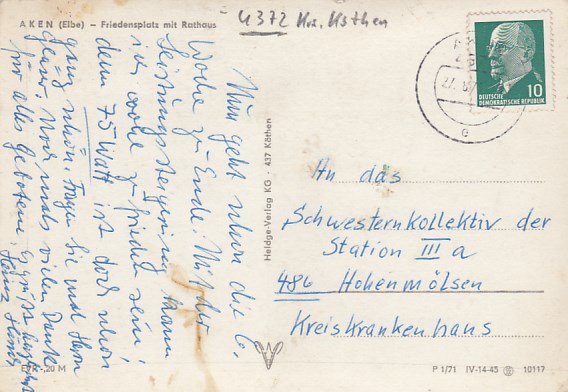 AKEN (Elbe) – Friedensplatz mit Rathaus
4372 Krs. Köthen
DEUTSCHE
DEMOKRATISCHE REPUBLIK
10
27.
e
Nun geht schon die 6.
Woche zu Ende. Mit der
Leistungssteigerung kann
ich wohl zufrieden sein;
denn 75 Watt ist doch schon
ganz schön. Fragen Sie mal Herrn
Noch mals vielen Dank
für alles Gebotene. Es grüßt
Heinz
Heldge-Verlag KG · 437 Köthen
An das
Schwesternkollektiv der
Station III a
486 Hohenmölsen
Kreiskrankenhaus
EVK -,20 M
P 1/71 IV-14-45 10117